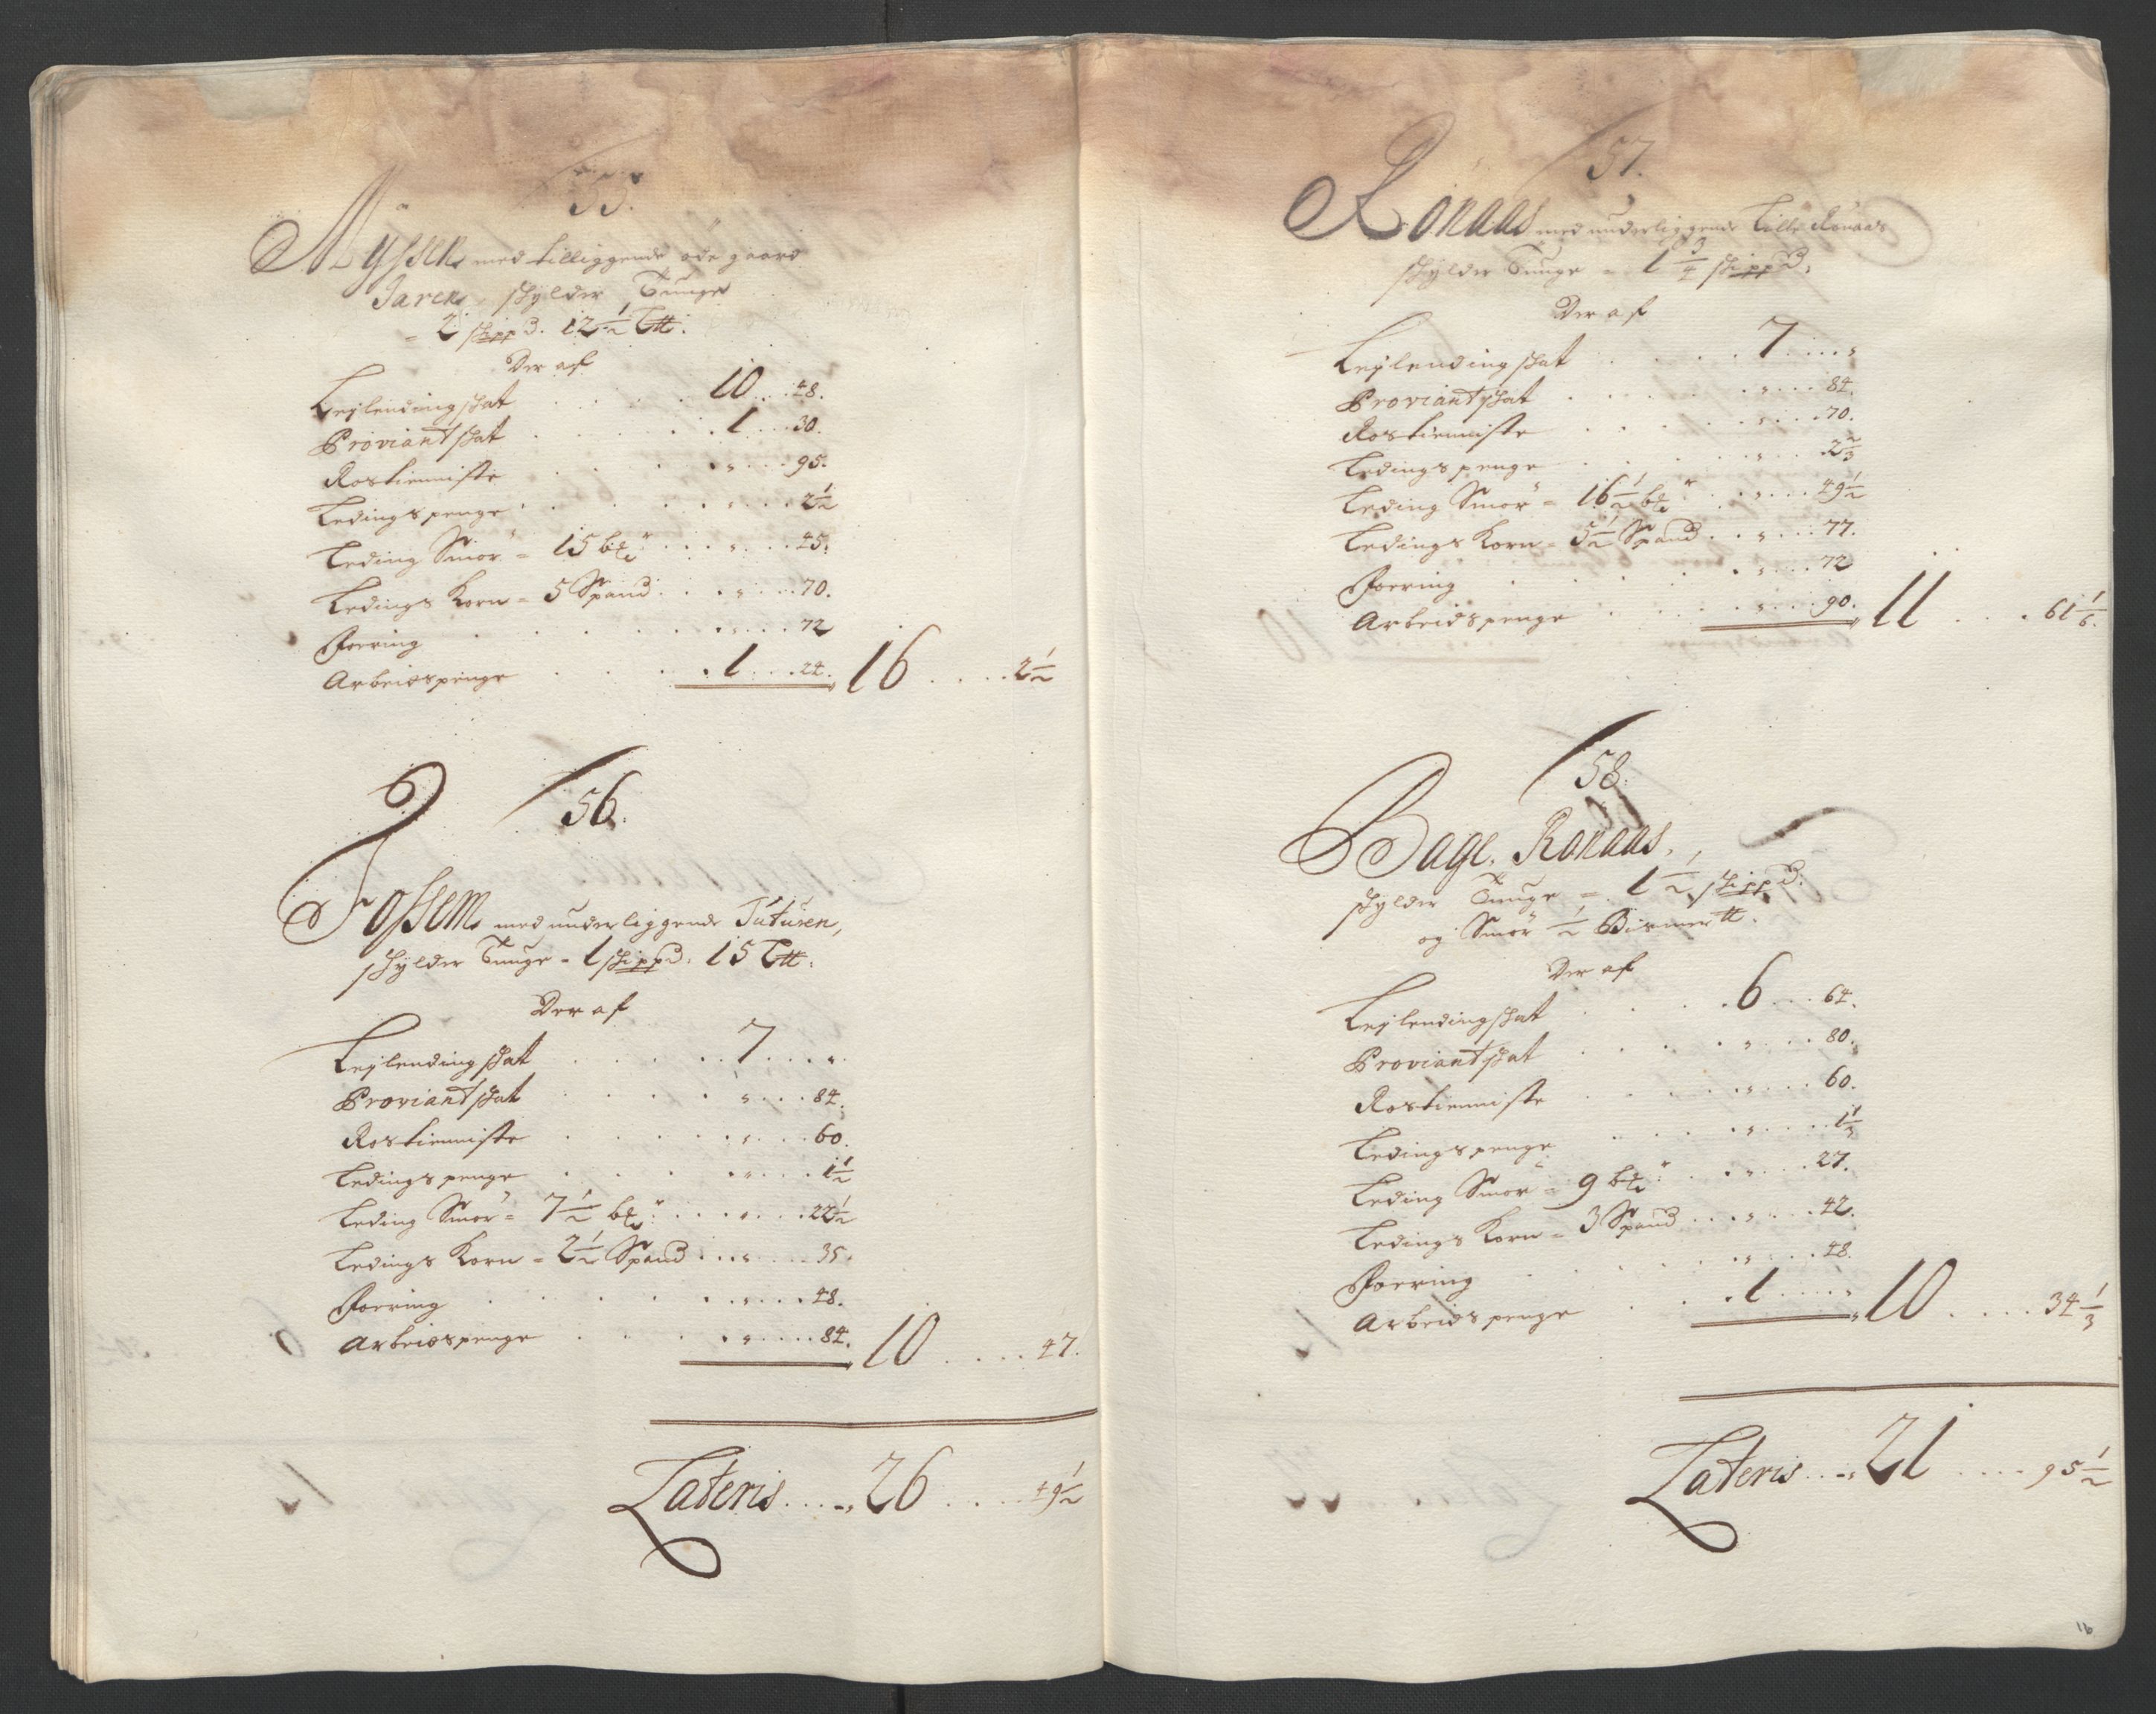 55.
Myssen med tilliggende øde gaard
Jaren, skylder Tunge
= 2 skippd. 12½ L℔.
Der af
Leylendingskat . . . . . 10 . . . 48.
Proviantskat . . . . . . 1 . . . 30.
Rostienniste . . . . . „ . . . 95.
Ledingspenge . . . . . „ . . . 2½
Leding Smör = 15 bll . . . „ . . . 45.
Ledings Korn = 5 Spand . . . „ . . . 70.
Foering . . . . . . „ . . . 72
Arbeidspenge . . . . . 1 . . . 24. 16 . . . . 2½
56.
Fossem med underliggende Tutusen,
skylder Tunge = 1 skippd. 15 L℔.
Der af
Leylendingskat . . . . . 7 . . . „
Proviantskat . . . . . „ . . . 84.
Rostienniste . . . . . „ . . . 60.
Ledingspenge . . . . . „ . . . 1½
Leding Smör = 7½ bll . . . „ . . . 22½
Ledings Korn = 2½ Spand . . . „ . . . 35.
Foering . . . . . . „ . . . 48.
Arbeidspenge . . . . . „ . . . 84. 10 . . . . 47.
Lateris . . . . 26 . . . . 49½
57.
Ronaas med underliggende Lille Ronaas
skylder Tunge = 1¾ skippd.
Der af
Leylendingskat . . . . . 7 . . . „
Proviantskat . . . . . „ . . . 84.
Rostienniste . . . . . „ . . . 70.
Ledingspenge . . . . . „ . . . 2⅔
Leding Smör = 16½ bll . . . „ . . . 49½
Ledings Korn = 5½ Spand . . . „ . . . 77.
Foering . . . . . . „ . . . 72
Arbeidspenge . . . . . „ . . . 90. 11 . . . . 61⅙.
58.
Bage Ronaas,
skylder Tunge = 1½ skippd.
og Smör ½ Bismer℔.
Der af
Leylendingskat . . . . . 6 . . . 64.
Proviantskat . . . . . „ . . . 80.
Rostienniste . . . . . „ . . . 60.
Ledingspenge . . . . . „ . . . 1⅓
Leding Smör = 9 bll . . . „ . . . 27.
Ledings Korn = 3 Spand . . . „ . . . 42.
Foering . . . . . . „ . . . 48.
Arbeidspenge . . . . . 1 . . . „ 10 . . . . 34⅓
Lateris . . . . 21 . . . . 95½
16